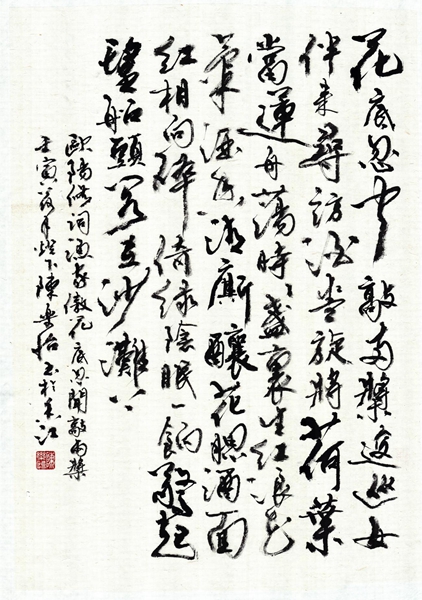 花底忽聞敲兩槳逡巡女
伴来尋訪酒盞旋將荷葉
當蓮舟蕩時時盞裏生紅浪花
氣酒香清廝釀花腮酒面
紅相向醉倚綠陰眠一餉驚起
望船頭閣在沙灘上
歐陽修詞漁家傲花底忽聞敲兩槳
壬寅月燈下陳樂怡書於江